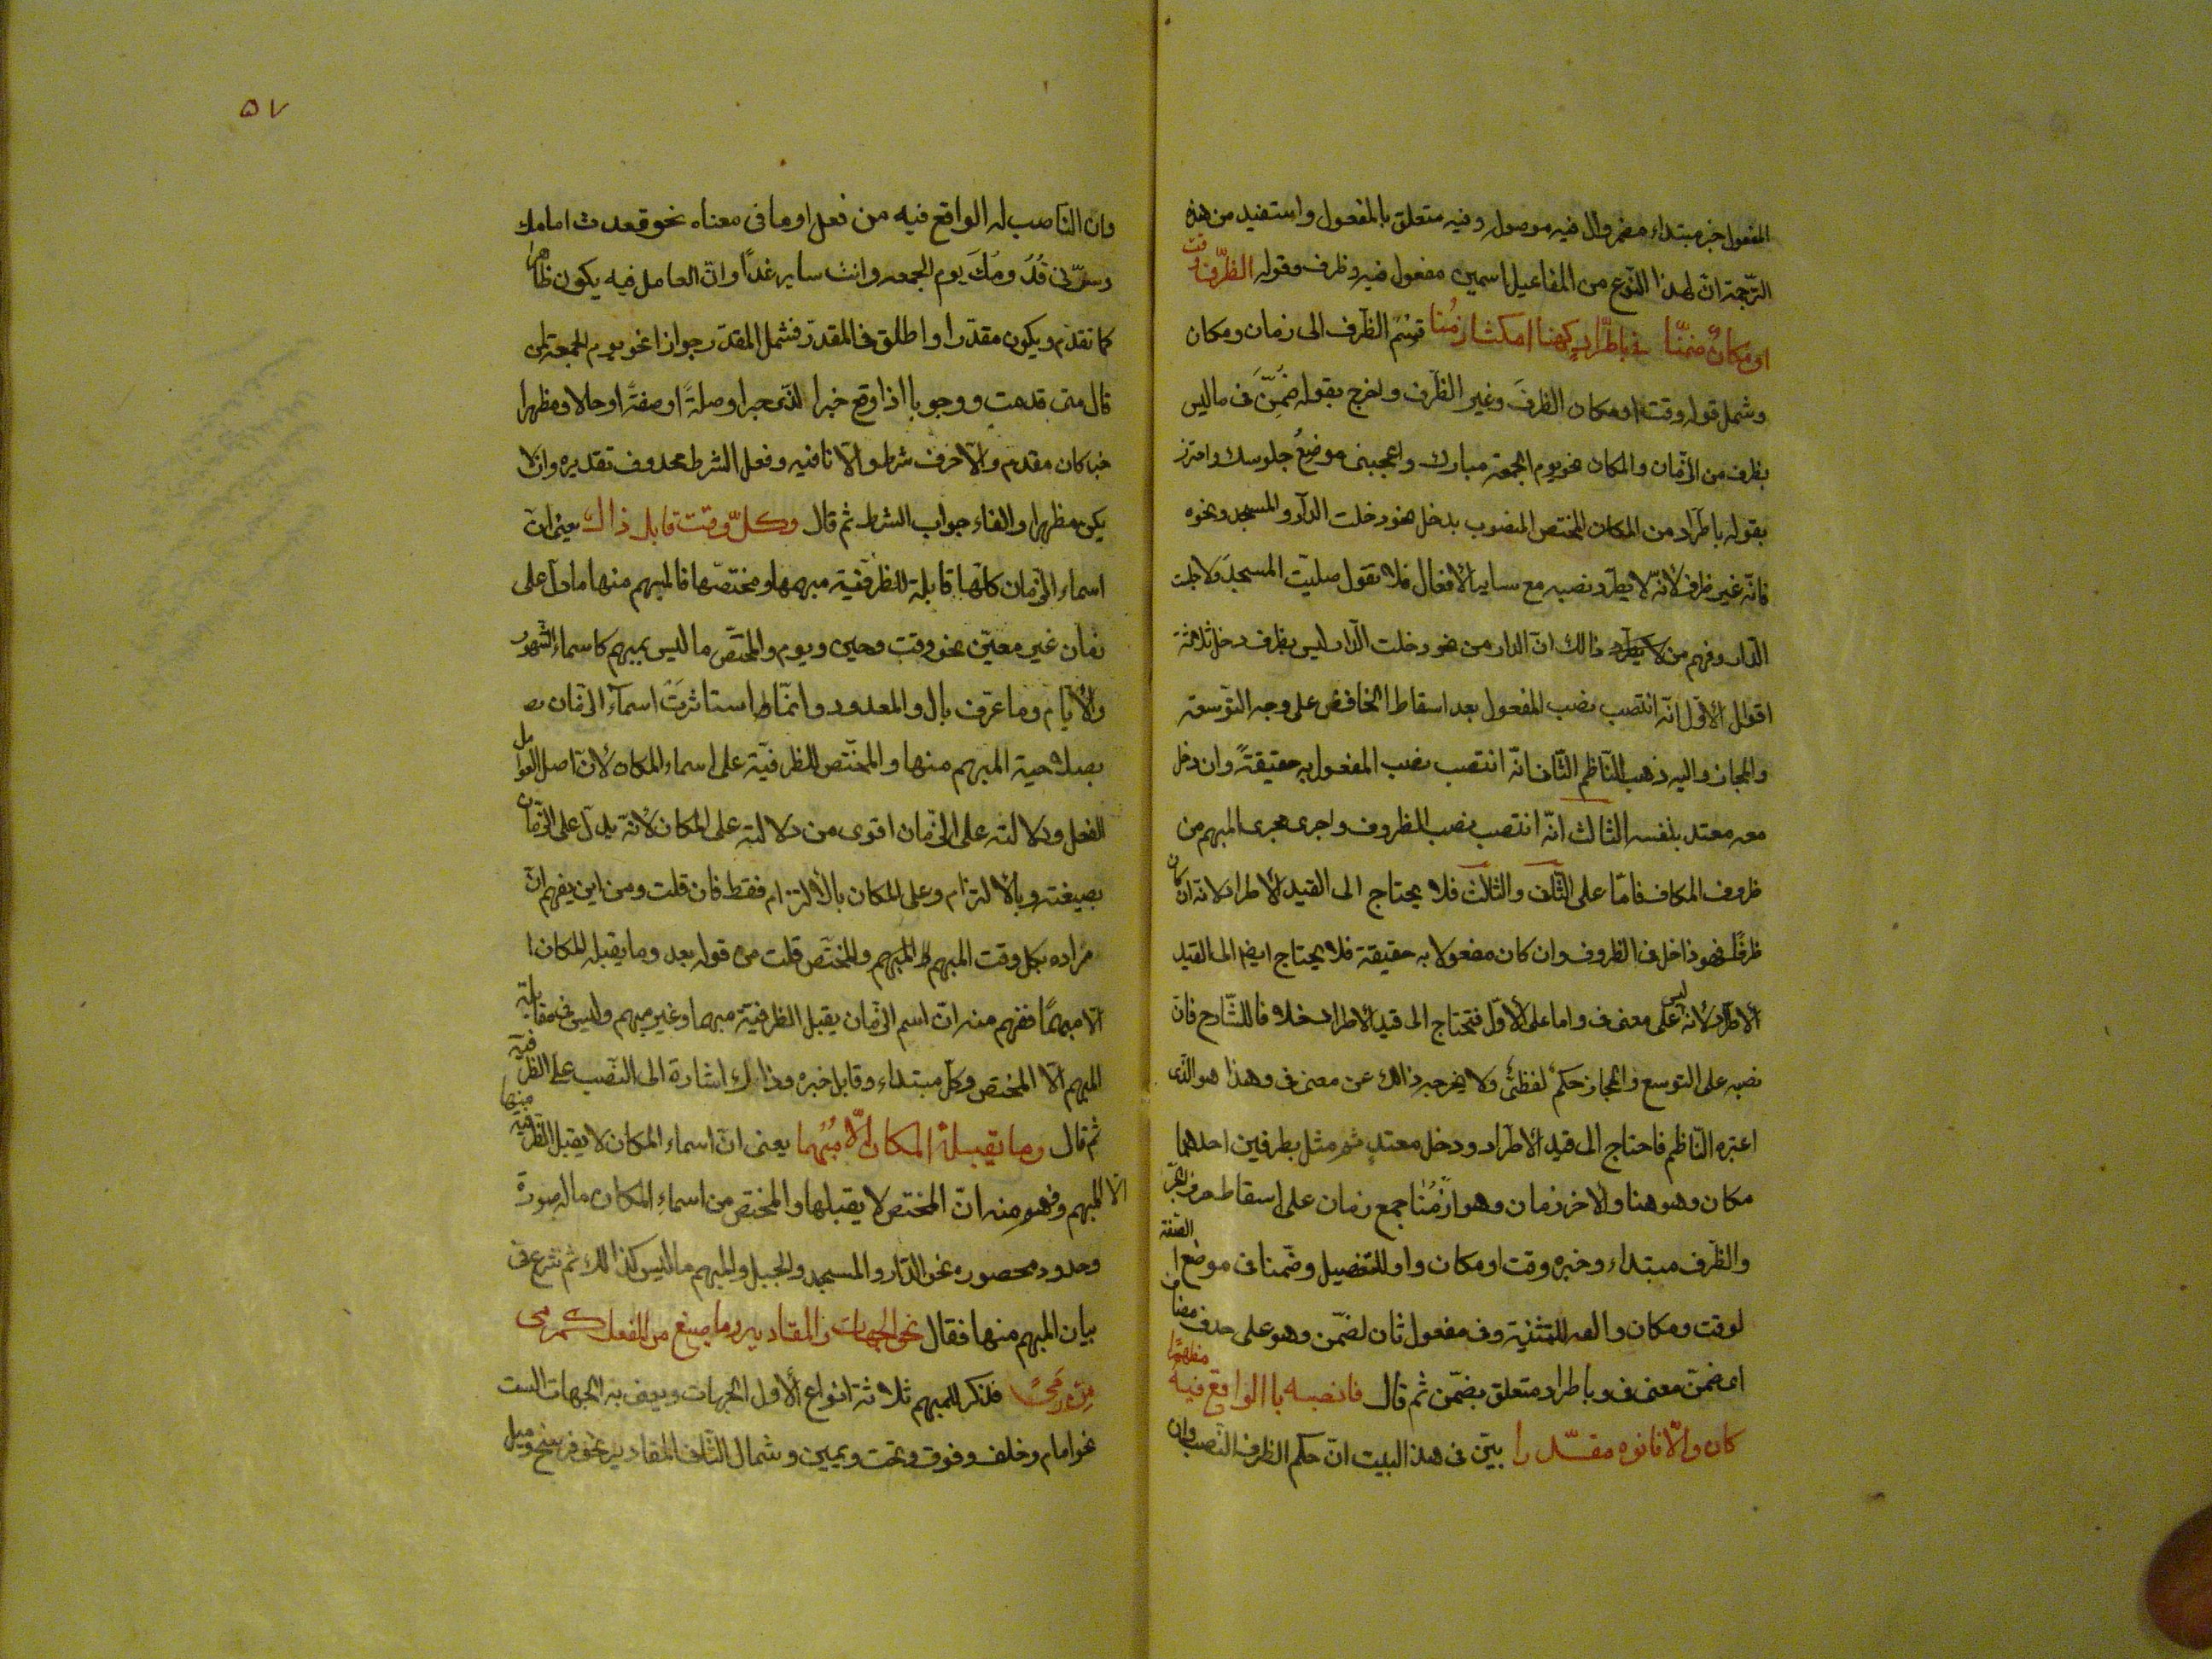 المفعول خبر مبتداء مضمر وال فيه موصوله وفيه متعلق بالمفعول واستفيد من هذه
الترجمة ان لهذا النوع من المفاعيل اسمين مفعول فيه وظرف وقوله الظرف وقت
او مكان ضمنا في باطراد كهنا امكث ازمنا قسم الظرف الى زمان ومكان
وشمل قوله وقت او مكان الظرف وغير الظرف واخرج بقوله ضمن في ما ليس
بظرف من الزمان والمكان نحو يوم الجمعة مبارك واعجبني موضع جلوسك واحترز
بقوله باطراد من المكان المختص المنصوب بدخل نحو دخلت الدار والمسجد ونحوه
فانه غير ظرف لانه لا يطرد نصبه مع ساير الأفعال فلا تقول صليت المسجد ولا جلست
الدار وفهم من ذالك ان الدار من نحو دخلت الدار ليس بظرف دخل ثلاثة
اقوال الأول انه انتصب نصب المفعول بعد اسقاط الخافض على وجه التوسعة
والمجاز واليه ذهب الناظم الثاني انه انتصب نصب المفعول به حقيقة وان دخل
معه معتد بنفسه الثالث انه انتصب نصب الظروف واجرى مجرى المبهم من
ظروف المكان فاما على الثاني والثالث فلا يحتاج الى القيد الاطراد لانه ان كان
ظرفا فهو داخل في الظروف وان كان مفعولا به حقيقة فلا يحتاج ايضا الى القيد
الاطراد لانه ليس على معنى في واما على الأول فتحتاج الى قيد الاطراد خلافا للشارح فان
نصبه على التوسع والمجاز حكم لفظي ولا يخرجه ذالك عن معنى في وهذا هو الذى
اعتبره الناظم فاحتاج الى قيد الأطراد ودخل معتد ثم مثل بظرفين احدهما
مكان وهو هنا والاخر زمان وهو ازمنا جمع زمان على اسقاط حرف الجر
والظرف مبتداء وخبره وقت او مكان واو للتفصيل وضمنا في موضع الصفة
لوقت ومكان والفه للتثنية وفي مفعول ثان لضمن وهو على حذف مضاف
اى ضمن معنى في وباطراد متعلق بضمن ثم قال فانصبه باالواقع فيه مظهرا
كان والا فانوه مقدرا بين في هذا البيت ان حكم الظرف النصب وان
٥٧
وان الناصب له الواقع فيه من فعل او ما في معناه نحو قعدت امامك
وسرني قدومك يوم الجمعه وانت ساير غدا وان العامل فيه يكون ظاهرا
كما تقدم ويكون مقدرا واطلق في المقدر فشمل المقدر جوازا نحو يوم الجمعة لمن
قال متى قدمت ووجوبا اذا وقع خبرا لذى خبر او صلة او صفة او حالا ومظهرا
خبر كان مقدم والا حرف شرط ولا نافيه وفعل الشرط محذوف تقديره وان لا
يكن مظهرا والفاء جواب الشرط ثم قال وكل وقت قابل ذاك يعني ان
اسماء الزمان كلها قابلة للظرفية مبهمها ومختصها فالمبهم منها ما دل على
زمان غير معين نحو وقت وحين ويوم والمختص ما ليس بمبهم كاسماء الشهور
والأيام وما عرف بال والمعدود وانما استاثرت اسماء الزمان
بصلاحية المبهم منها والمختص للظرفية على اسماء المكان لأن اصل العوامل
الفعل ودلالته على الزمان اقوى من دلالته على المكان لأنه يدل على الزمان
بصيغته وبالالتزام وعلى المكان بالالتزام فقط فان قلت ومن اين يفهم ان
مراده بكل وقت المبهم والمختص قلت من قوله بعد وما يقبله المكان ا
الا مبهما ففهم منه ان اسم الزمان يقبل الظرفية مبهما وغير مبهم وليس في مقابلة
المبهم الا المختص وكل مبتداء وقابل خبره وذاك اشارة الى النصب على الظرفية
ثم قال وما يقبله المكان الا مبهما يعنى ان اسماء المكان لا يقبل الظرفية منها
الا المبهم وفهم منه ان المختص لا يقبلها والمختص من اسماء المكان ما له صورة
وحدود محصوره نحو الدار والمسجد والجبل والمبهم ما ليس كذالك ثم شرع في
بيان المبهم منها فقال نحو الجهات والمقادير وما صيغ من الفعل كمرمى
من رمى فذكر للمبهم ثلاثة انواع الأول الجهات ويعنى به الجهات الست
نحو امام وخلف وفوق وتحت ويمين وشمال الثاني المقادير نحو فرسخ وميل